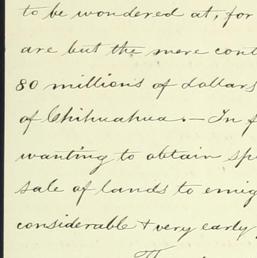 to be wondered at, for
are but the mere cont
80 millions of dollars
of Chihuahua. — In f
wanting to obtain sp
sale of lands to emig
considerable + very early